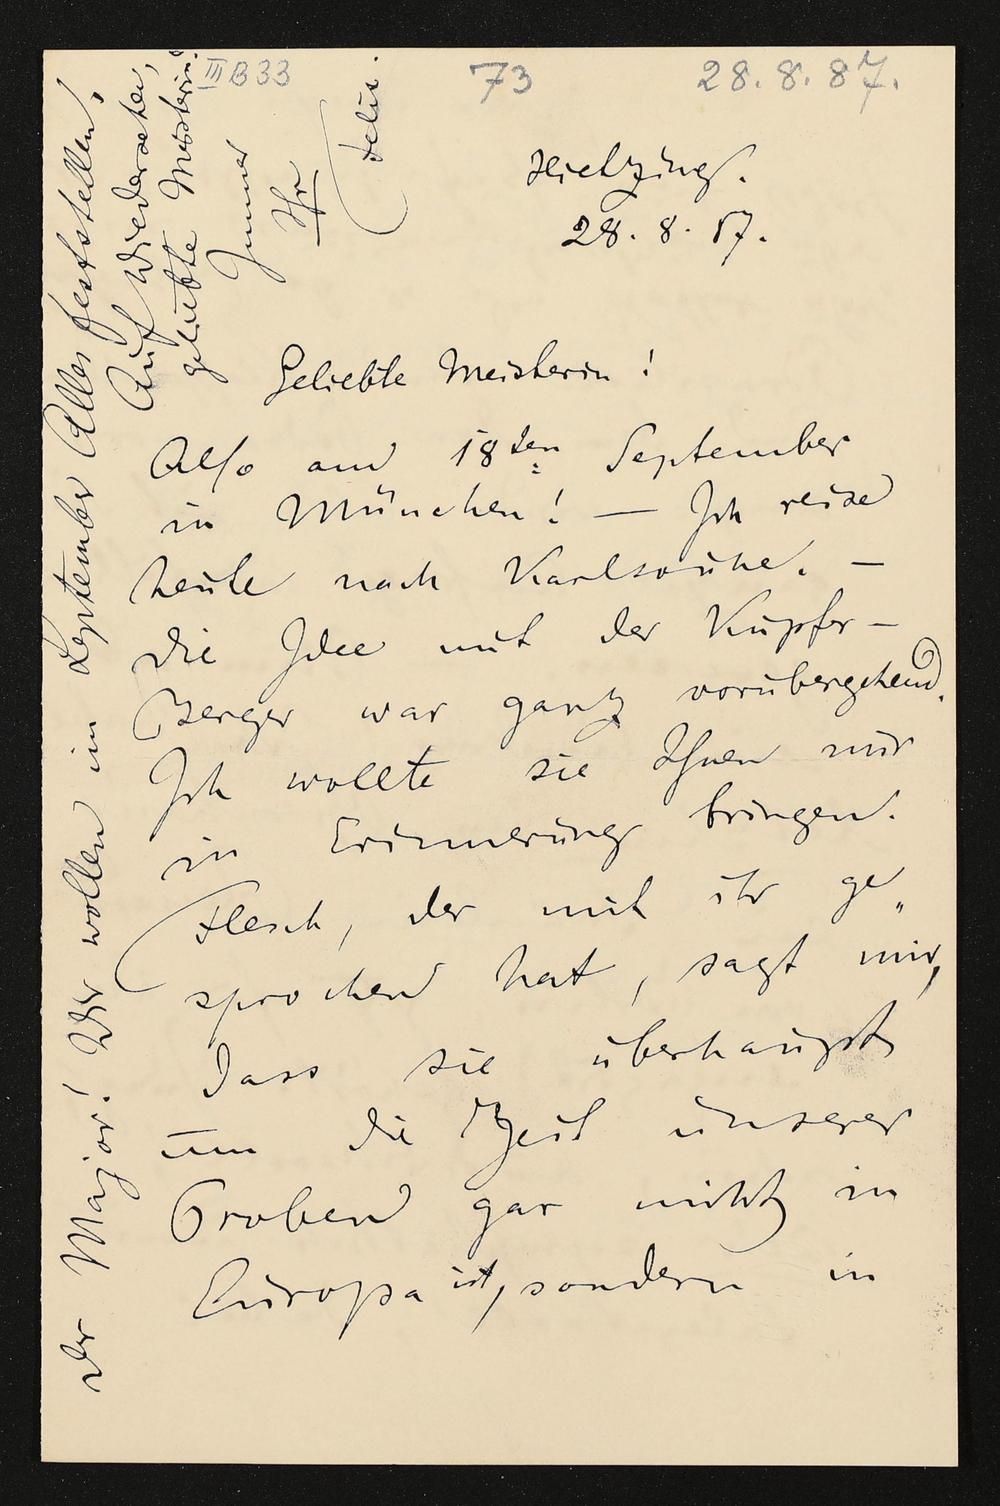 III B 33
73
28. 8. 87.
Hietzing.
28. 8. 87.
Geliebte Meisterin!
Also am 18ten September
in München! — Ich reise
heute nach Karlsruhe. —
die Idee mit der Kupfer-
Berger war gantz vorübergehend.
Ich wollte sie Ihnen nur
in Erinnerung bringen.
Flesch, der mit ihr ge„
sprochen hat, sagt mir,
dass sie überhaupt
um die Zeit unserer
Proben gar nicht in
Europa ist, sondern in
der Major! Wir wollen im September Alles feststellen!
Auf Wiedersehen,
geliebte Meisterin!
Immer
Ihr
Felix.